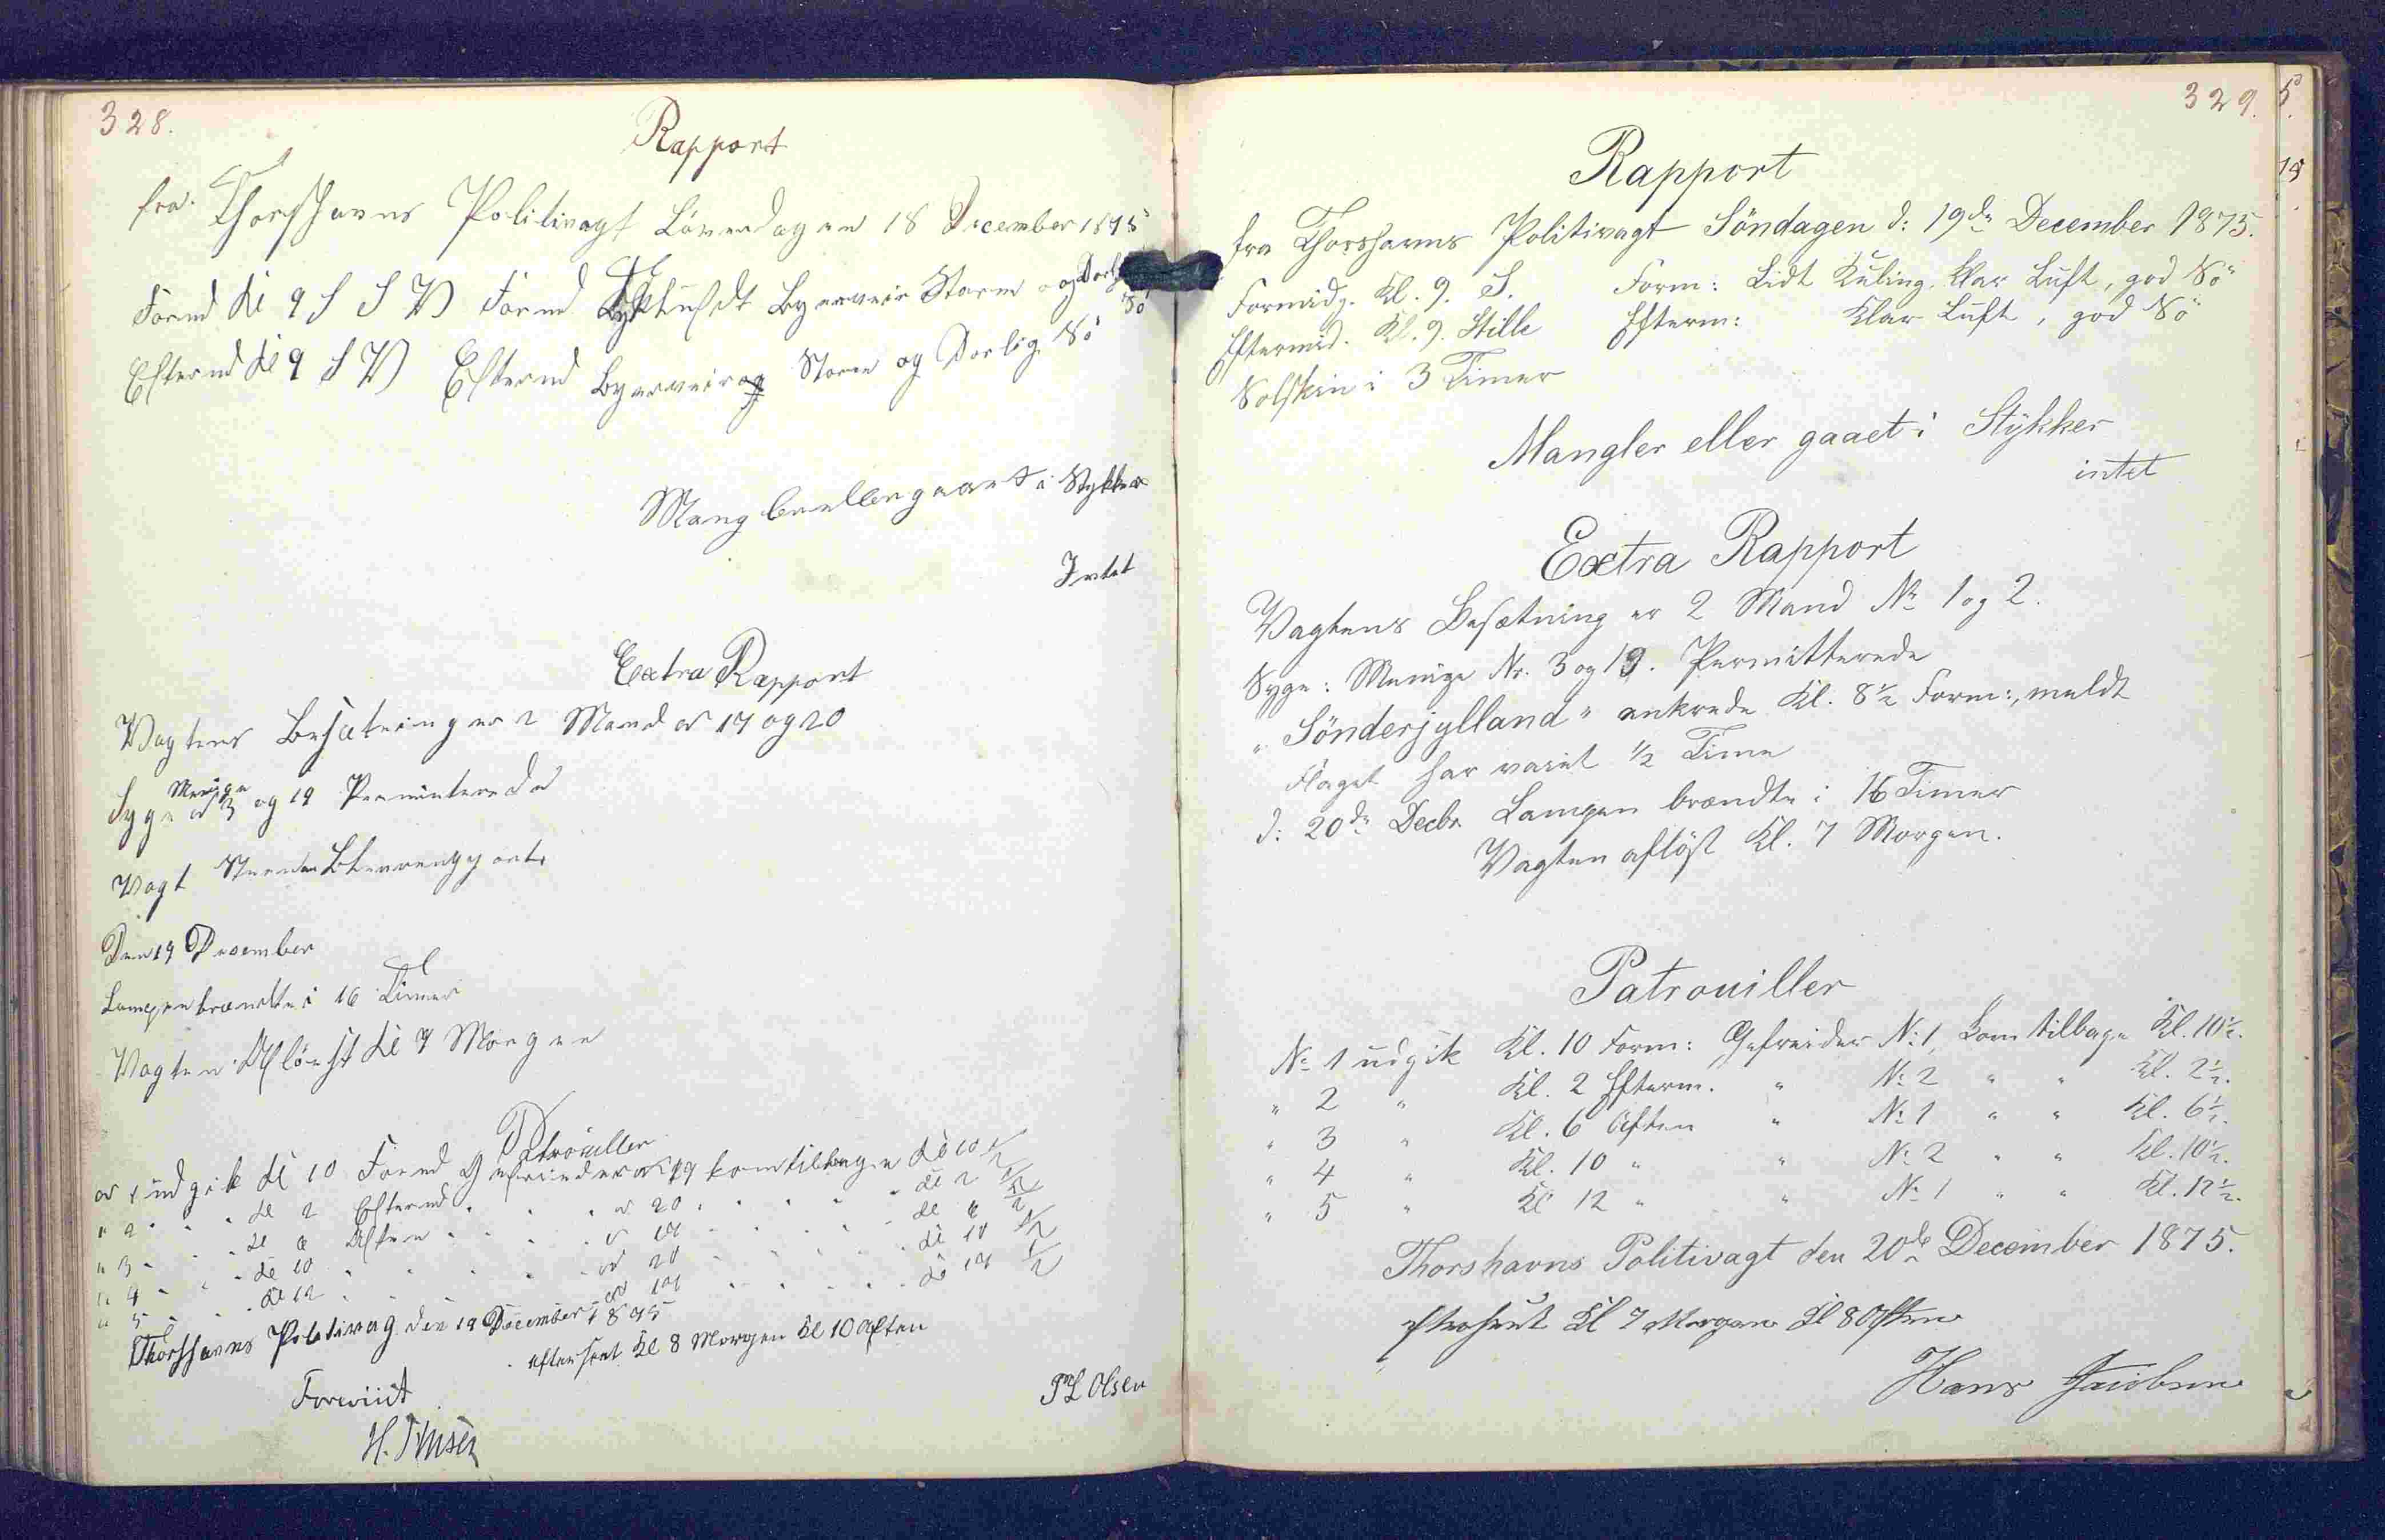 328.
Rapport
fra Thorshavns Politivagt Löverdagen 18 December 1875
Formd Kl 9 S S V Formd Byerveir Storm og Dorlig
Sö
Eftermd Kl 9 S V Eftermd Byerveir og Storm og Dorlig Sö
Mangler eller gaaet i Stykker
Intet
Extra Rapport
Vagtens Besætning er 2 Mand No 19 og 20
Menige
Syge No 3 og 19 Permiterede
Vagt
Den 19 December
Lampen brændte i 16 Timer
Vagten Aflöest Kl 7 Morgen
Patrouiller
No 1 udgik Kl 10 Formd Gefreider No 19 kom tilbage Kl 10 1/2
" 2 " " Kl 2 Eftermd " " No 20 " " " Kl 2 1/2
" 3 " " Kl 6 Aften " " No 19 " " " Kl 6 1/2
" 4 " " Kl 10 " " " No 20 " " " Kl 10 1/2
" 5 " " Kl 12 " " " No 19 " " " Kl 12 1/2
Thorshavns Politivag den 19 December 1875
efterseet Kl 8 Morgen Kl 10 Aften
Foreviist
P L Olsen
H.
329.
Rapport
fra Thorshavns Politivagt Söndagen d: 19de December 1875.
Formidg. Kl. 9. S. Form: Lidt Kuling, klar Luft, god Sö
Eftermid. Kl. 9. Stille Efterm: Klar Luft, god Sö
Solskin i 3 Timer
Mangler eller gaaet i Stykker
intet
Extra Rapport
Vagtens Besætning er 2 Mand No 1 og 2.
Syge: Menige Nr. 3 og 19. Permitterede
"Sönderjylland" ankrede Kl. 8 1/2 Form:, meldt
Flaget har vaiet 1/2 Time
d: 20de Decbr. Lampen brændte i 16 Timer
Vagten aflöst Kl. 7 Morgen.
Patrouiller
No 1 udgik Kl. 10 Form: Gefreider No 1, kom tilbage Kl. 10 1/2.
" 2 " Kl. 2 Efterm. " No 2 " " Kl. 2 1/2.
" 3 " Kl. 6 Aften " No 1 " " Kl. 6 1/2.
" 4 " Kl. 10 " " No 2 " " Kl. 10 1/2.
" 5 " Kl 12 " " No 1 " " Kl. 12 1/2.
Thorshavns Politivagt den 20de December 1875.
efterseet Kl 7 Morgen Kl 8 Aften
Hans Jacobsen